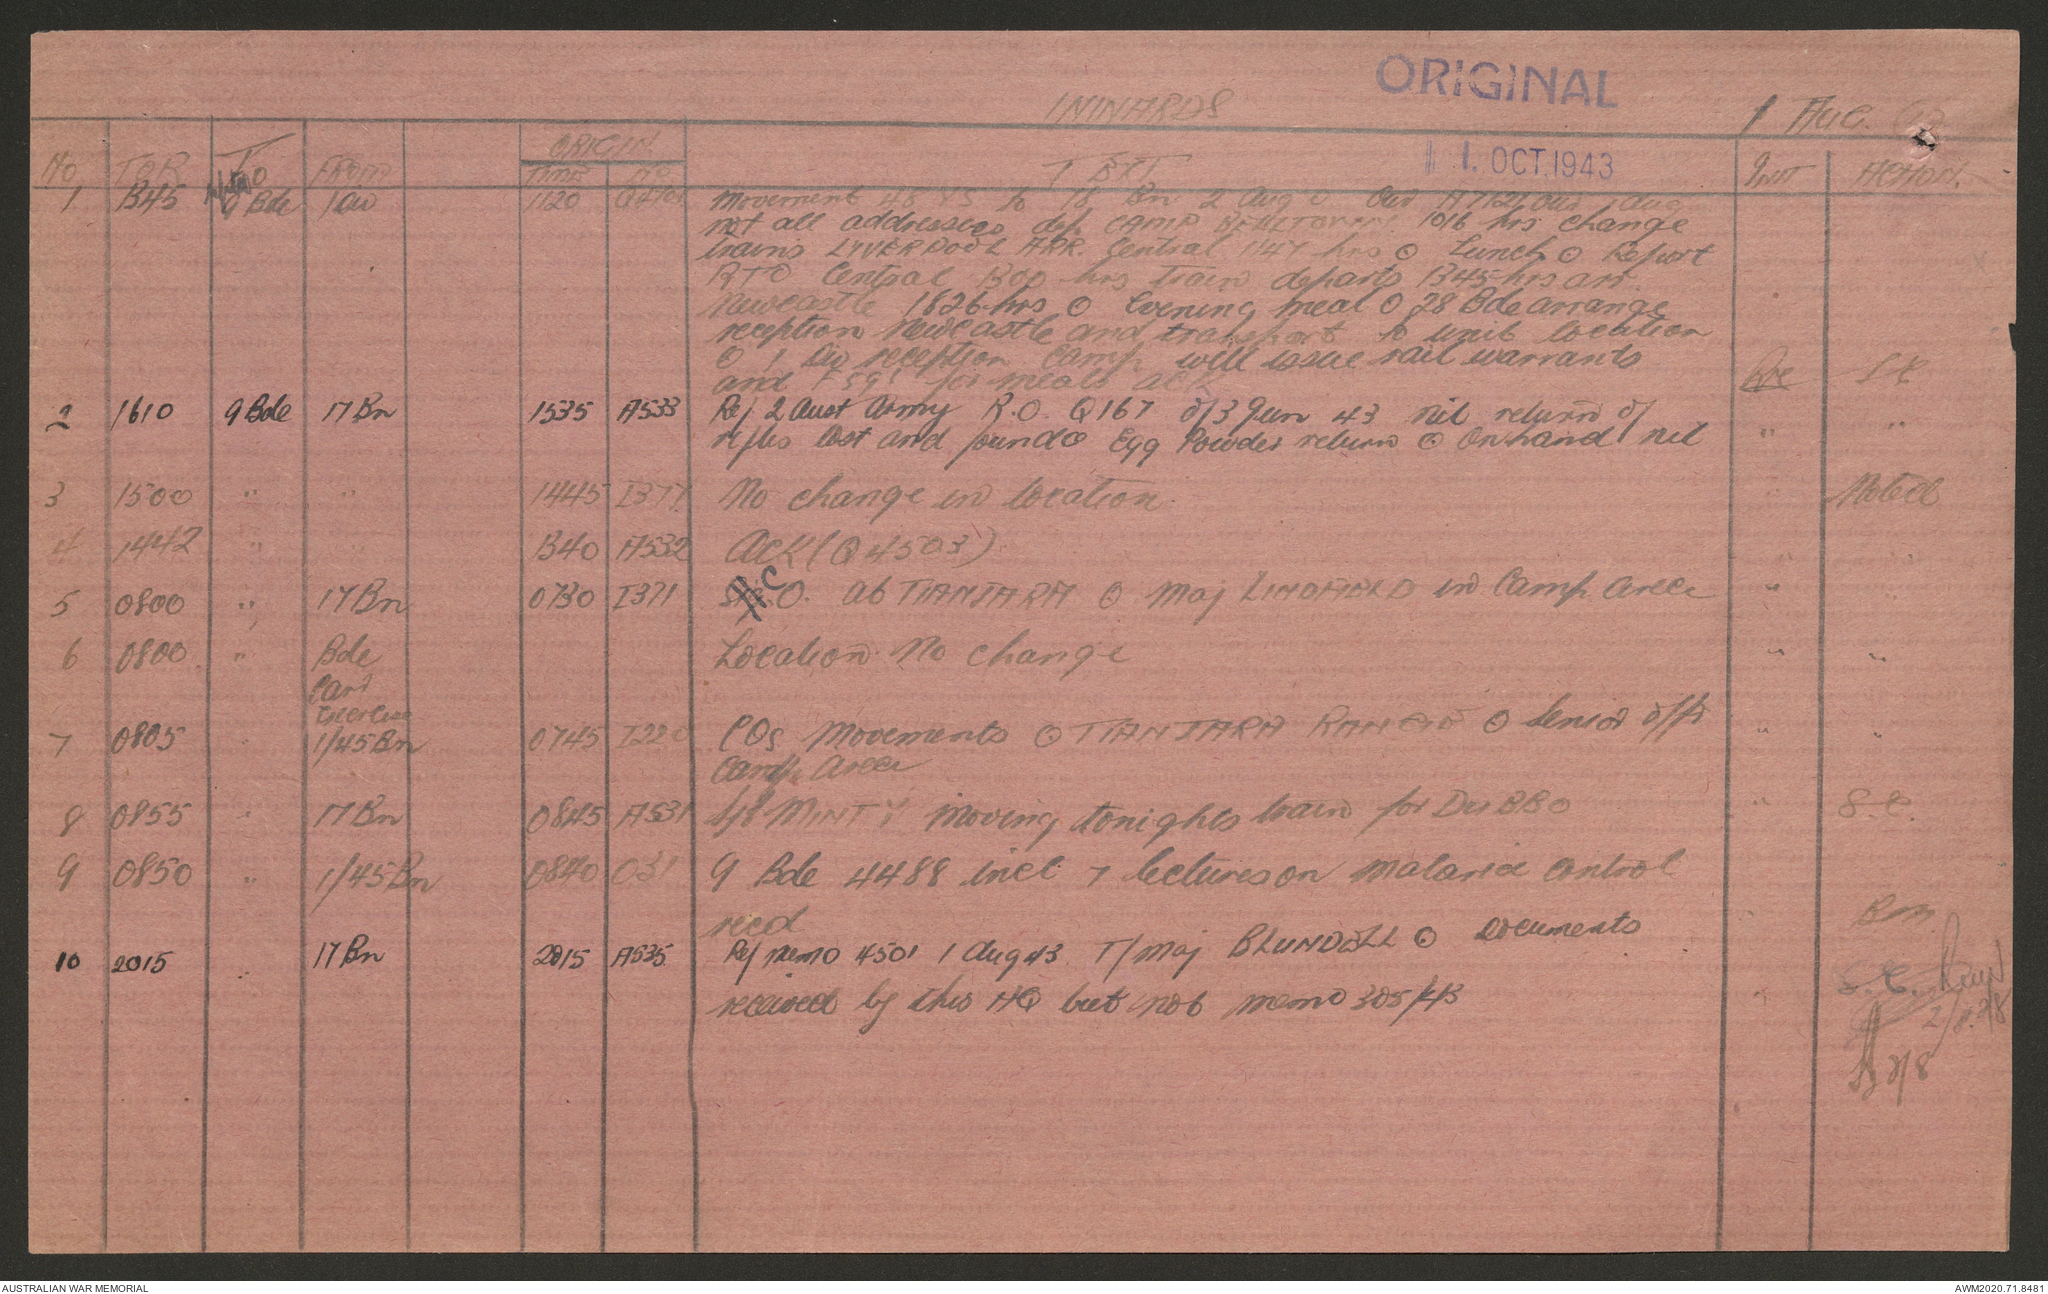 ORIGINAL
INWARDS
1 Aug.
11 OCT. 1943
ORIGIN
No TOR To FROM TIME No TEXT Init ACTION.
1 1345 9 Bde 1 Div 1120 Movement 18 Bn 2 Aug O
not all addressees dep CAMP 1016 hrs change
trains LIVERPOOL ARR. Central 1147 hrs O Lunch O Report
RTO Central 1300 hrs train departs 1345 hrs arr.
Newcastle 1826 hrs O Evening meal O 28 Bde arrange
reception Newcastle and transport to unit location
O 1 Div reception camp will issue rail warrants
and for meals ACK SC
2 1610 9 Bde 17 Bn 1535 A533 Ref 2 Aust Army R.O. Q167 of 3 Jun 43 nil return of " "
rifles lost and found O Egg Powder return O On hand nil
3 1500 " " 1445 I377 No change in location " Noted
4 1442 " " 1340 A532 ACK (Q4503) " "
5 0800 " 17 Bn 0730 I371 C.O. at TIANJARA O Maj LINDFIELD in Camp Area " "
6 0800 " Bde Location No change " "
7 0805 " 1/45 Bn 0745 COs Movements O TIANJARA RANGE O Senior offr " "
Camp Area
8 0855 " 17 Bn 0845 A531 MINTY moving tonights train for DUBBO " S.C.
9 0850 " 1/45 Bn 0840 O31 9 Bde 4488 incl 7 lectures on Malaria control
recd BM
10 2015 " 17 Bn 2015 A535 Ref memo 4501 1 Aug 43 T/Maj BLUNDELL O Documents
received by this HQ but not memo 305/43 S.C.
2/8
3/8
AUSTRALIAN WAR MEMORIAL
AWM2020.71.8481